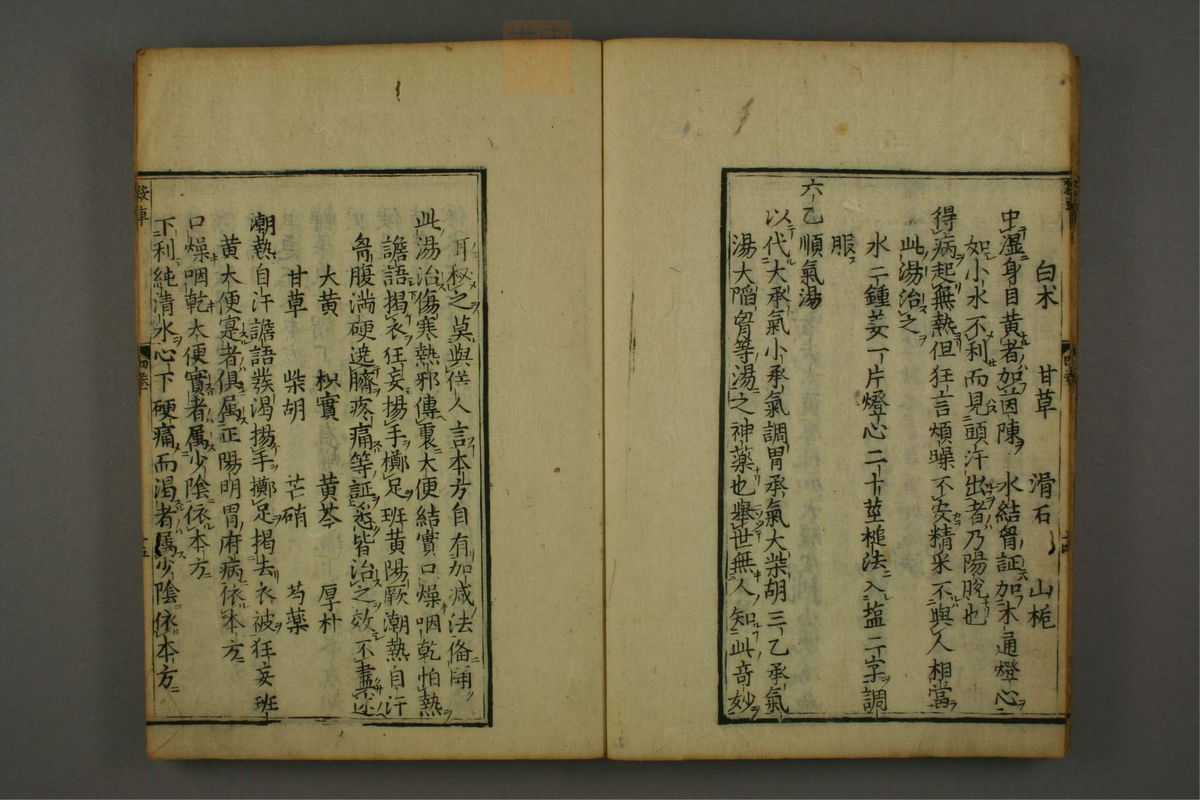 白术 甘草 滑石 山梔
中湿身目黄者加茵陳 水結胷証加木通燈心
如小水不利而見頭汗出者乃陽脫也
得病起無熱但狂言煩躁不安精采不與人相當
此湯治之
水二鍾姜一片燈心二十莖槌法入塩二字調
服
六乙順氣湯
以代大承氣小承氣調胃承氣大柴胡三乙承氣
湯大陷胷等湯之神藥也舉世無人知此奇妙
耳秘之莫與俗人言本方自有加减法俻開
此湯治傷寒熱邪傳裏大便結實口燥咽乾怕熱
譫語揭衣狂妄揚手擲足班黄陽厥潮熱自汗
胷腹滿硬遶臍疼痛等証悉皆治之效不盡述
大黄 枳實 黄芩 厚朴
甘草 柴胡 芒硝 芍藥
潮熱自汗譫語發渴揚手擲足揭去衣被狂妄班
黄大便寔者俱属正陽明胃府病依本方
口燥咽乾大便實者属少陰依本方
下利純清水心下硬痛而渴者属少陰依本方
殺車
四卷